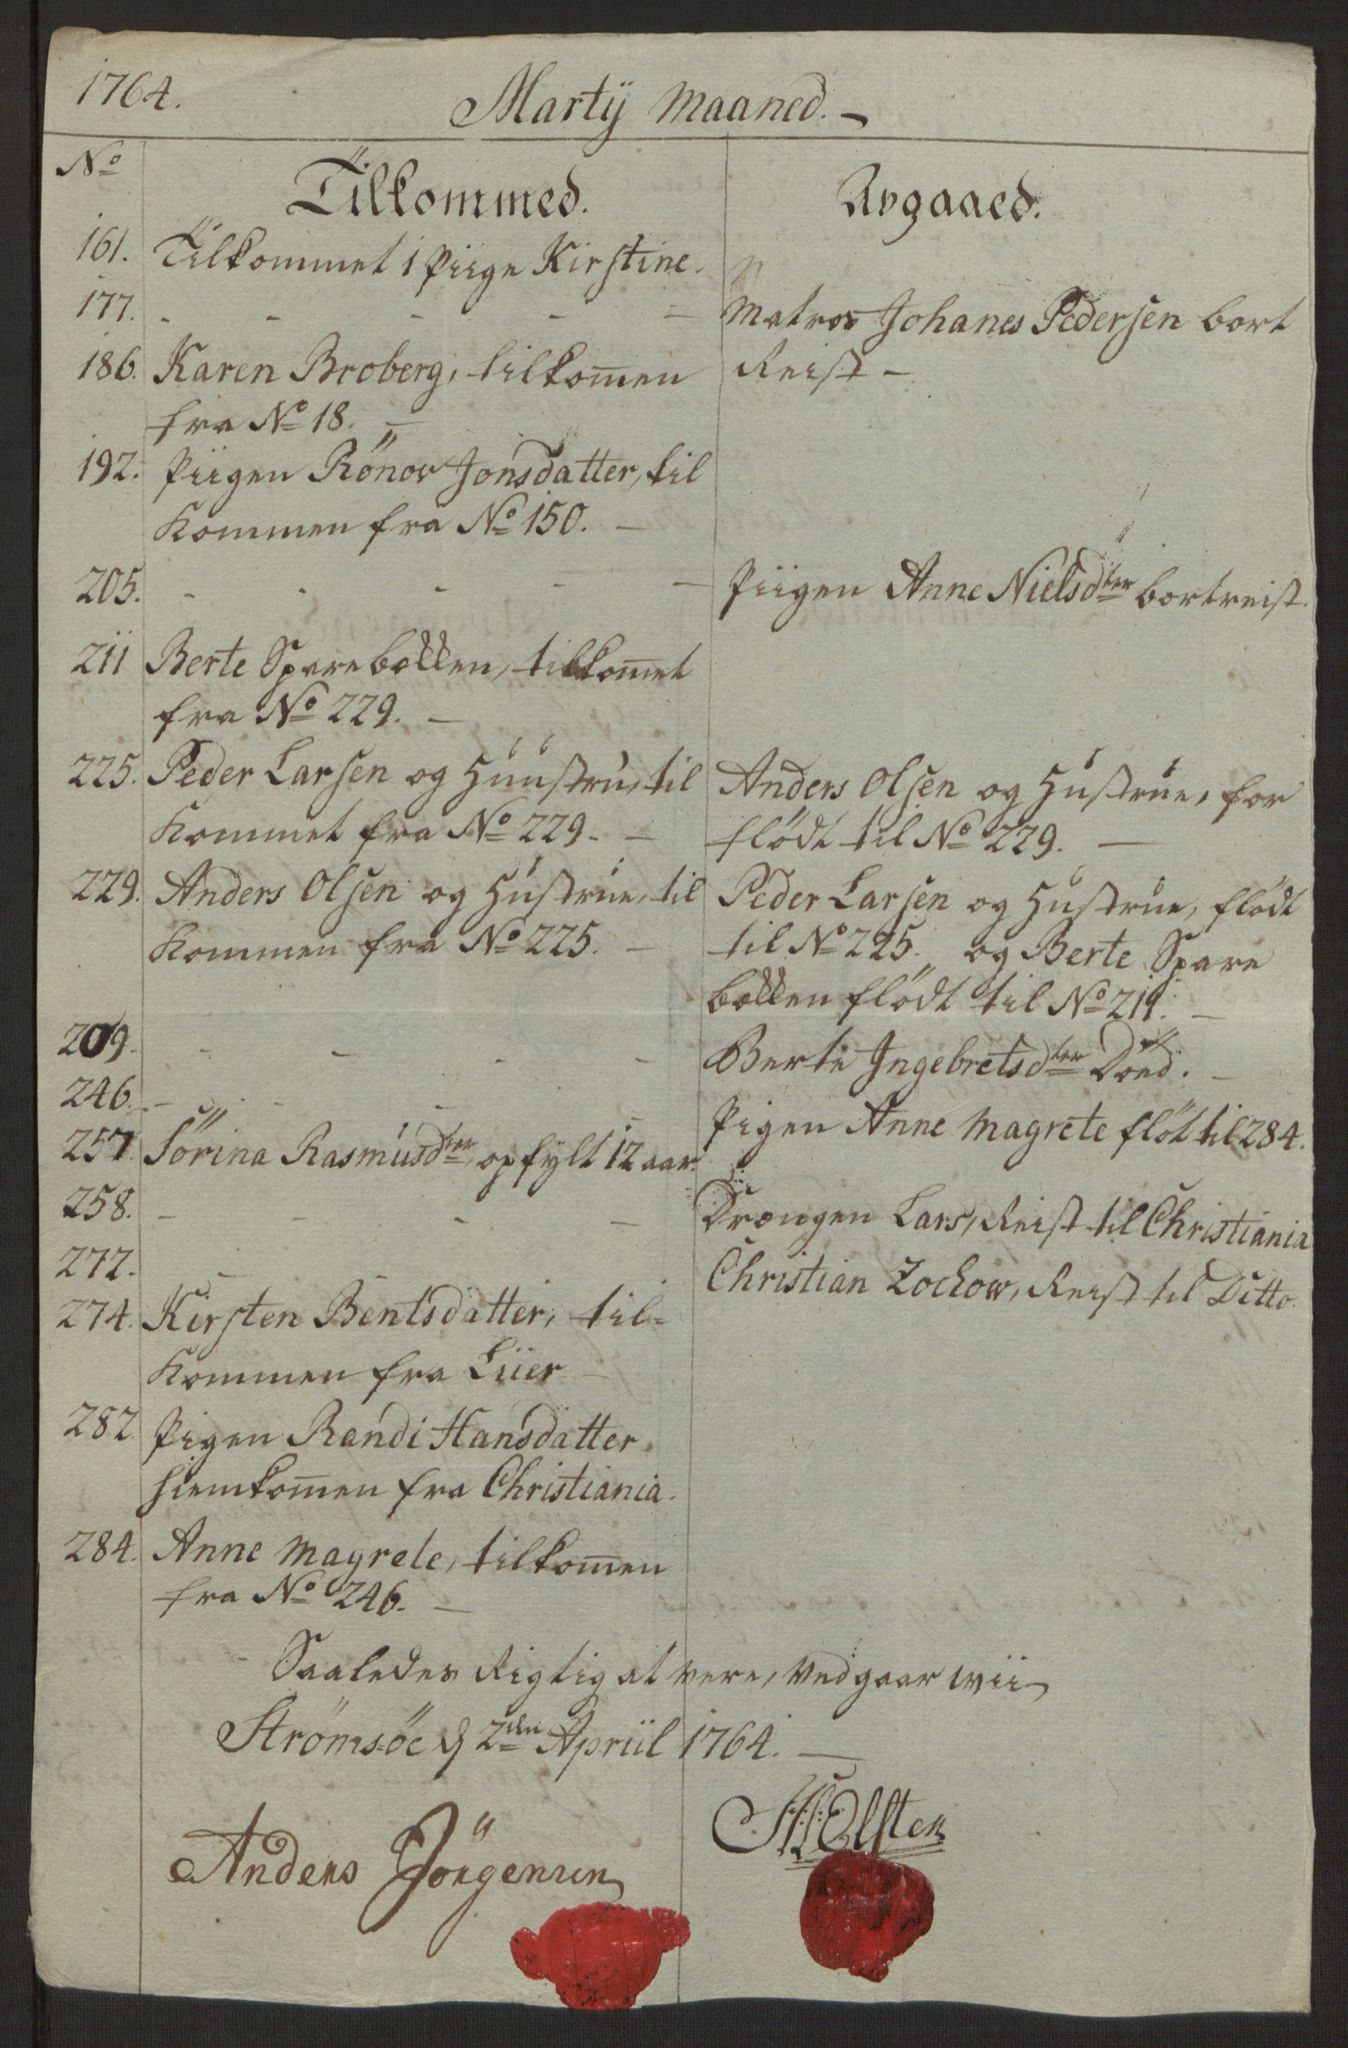 1764.
Martÿ Maaned.
No
Tilkommed. Avgaaed.
161. Tilkommet 1 Piige Kirstine.
177. - - - - - Matros Johanes Pedersen bort
Reist -
186. Karen Broberg, tilkom̅en
fra No 18. -
192. Piigen Rönov Jonsdatter, til
Kommen fra No 150. -
205. - - - - - Piigen Anne Nielsdter bortreist.
211 Berte Sparebækken, tilkom̅et
fra No 229. -
225. Peder Larsen og Huustru, til
Kommet fra No 229. -
Anders Olsen og Hustrue, for
flödt til No 229. -
229. Anders Olsen og Hustrue, til
Kommen fra No 225. -
Peder Larsen og Hustrue, flödt
til No 225. og Berte Spare
bækken flödt til No 211. -
209. - - - - Berte Ingebretsdter Döed. -
246. - - - - Pigen Anne Magrete flöt til 284.
257 Sörina Rasmusdter opfylt 12 aar.
258. - - - - Drængen Lars, Reist til Christiania
272. Christian Zochow, Reist til Ditto.
274. Kirsten Bentsdatter, til-
Kommen fra Liier -
282. Pigen Randi Hansdatter
hiemkom̅en fra Christiania.
284. Anne Magrete, tilkom̅en
fra No 246. -
Saaledes Rigtig at være, Vedgaar wii
Strömsöe d 2den Apriil 1764. -
Anders Jörgensen
Elster